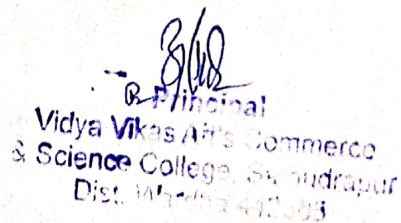 Principal
Vidya Vikas Art's Commerce
& Science College, Samudrapur
Dist. Wardha